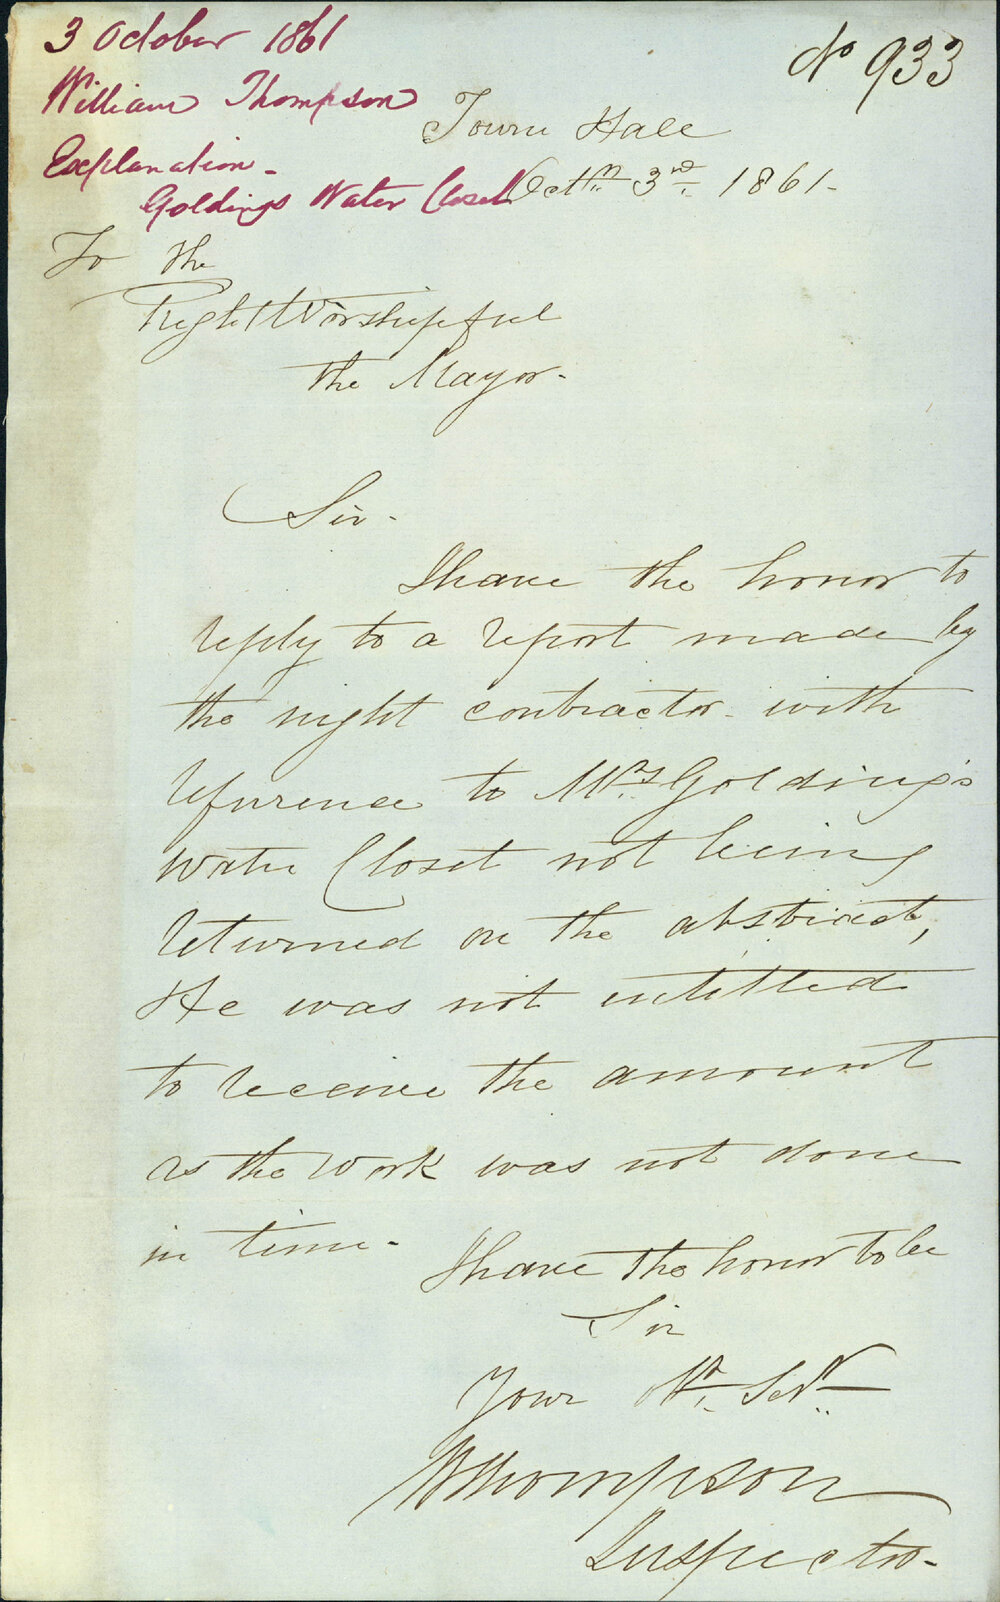 3 October 1861
No 933
William Thompson
Explanation -
Goldings Water Closet
Town Hall
Octr 3rd 1861 -
To the
Right Worshipful
the Mayor -
Sir -
I have the honor to
reply to a report made by
the night contractor - with
refurence to Mrs Golding's
Water Closet not being
returned on the abstract,
He was not intitled
to receive the amount
as the work was not done
in time -
I have the honor to be
Sir
Your Servt
WThompson
Inspector -